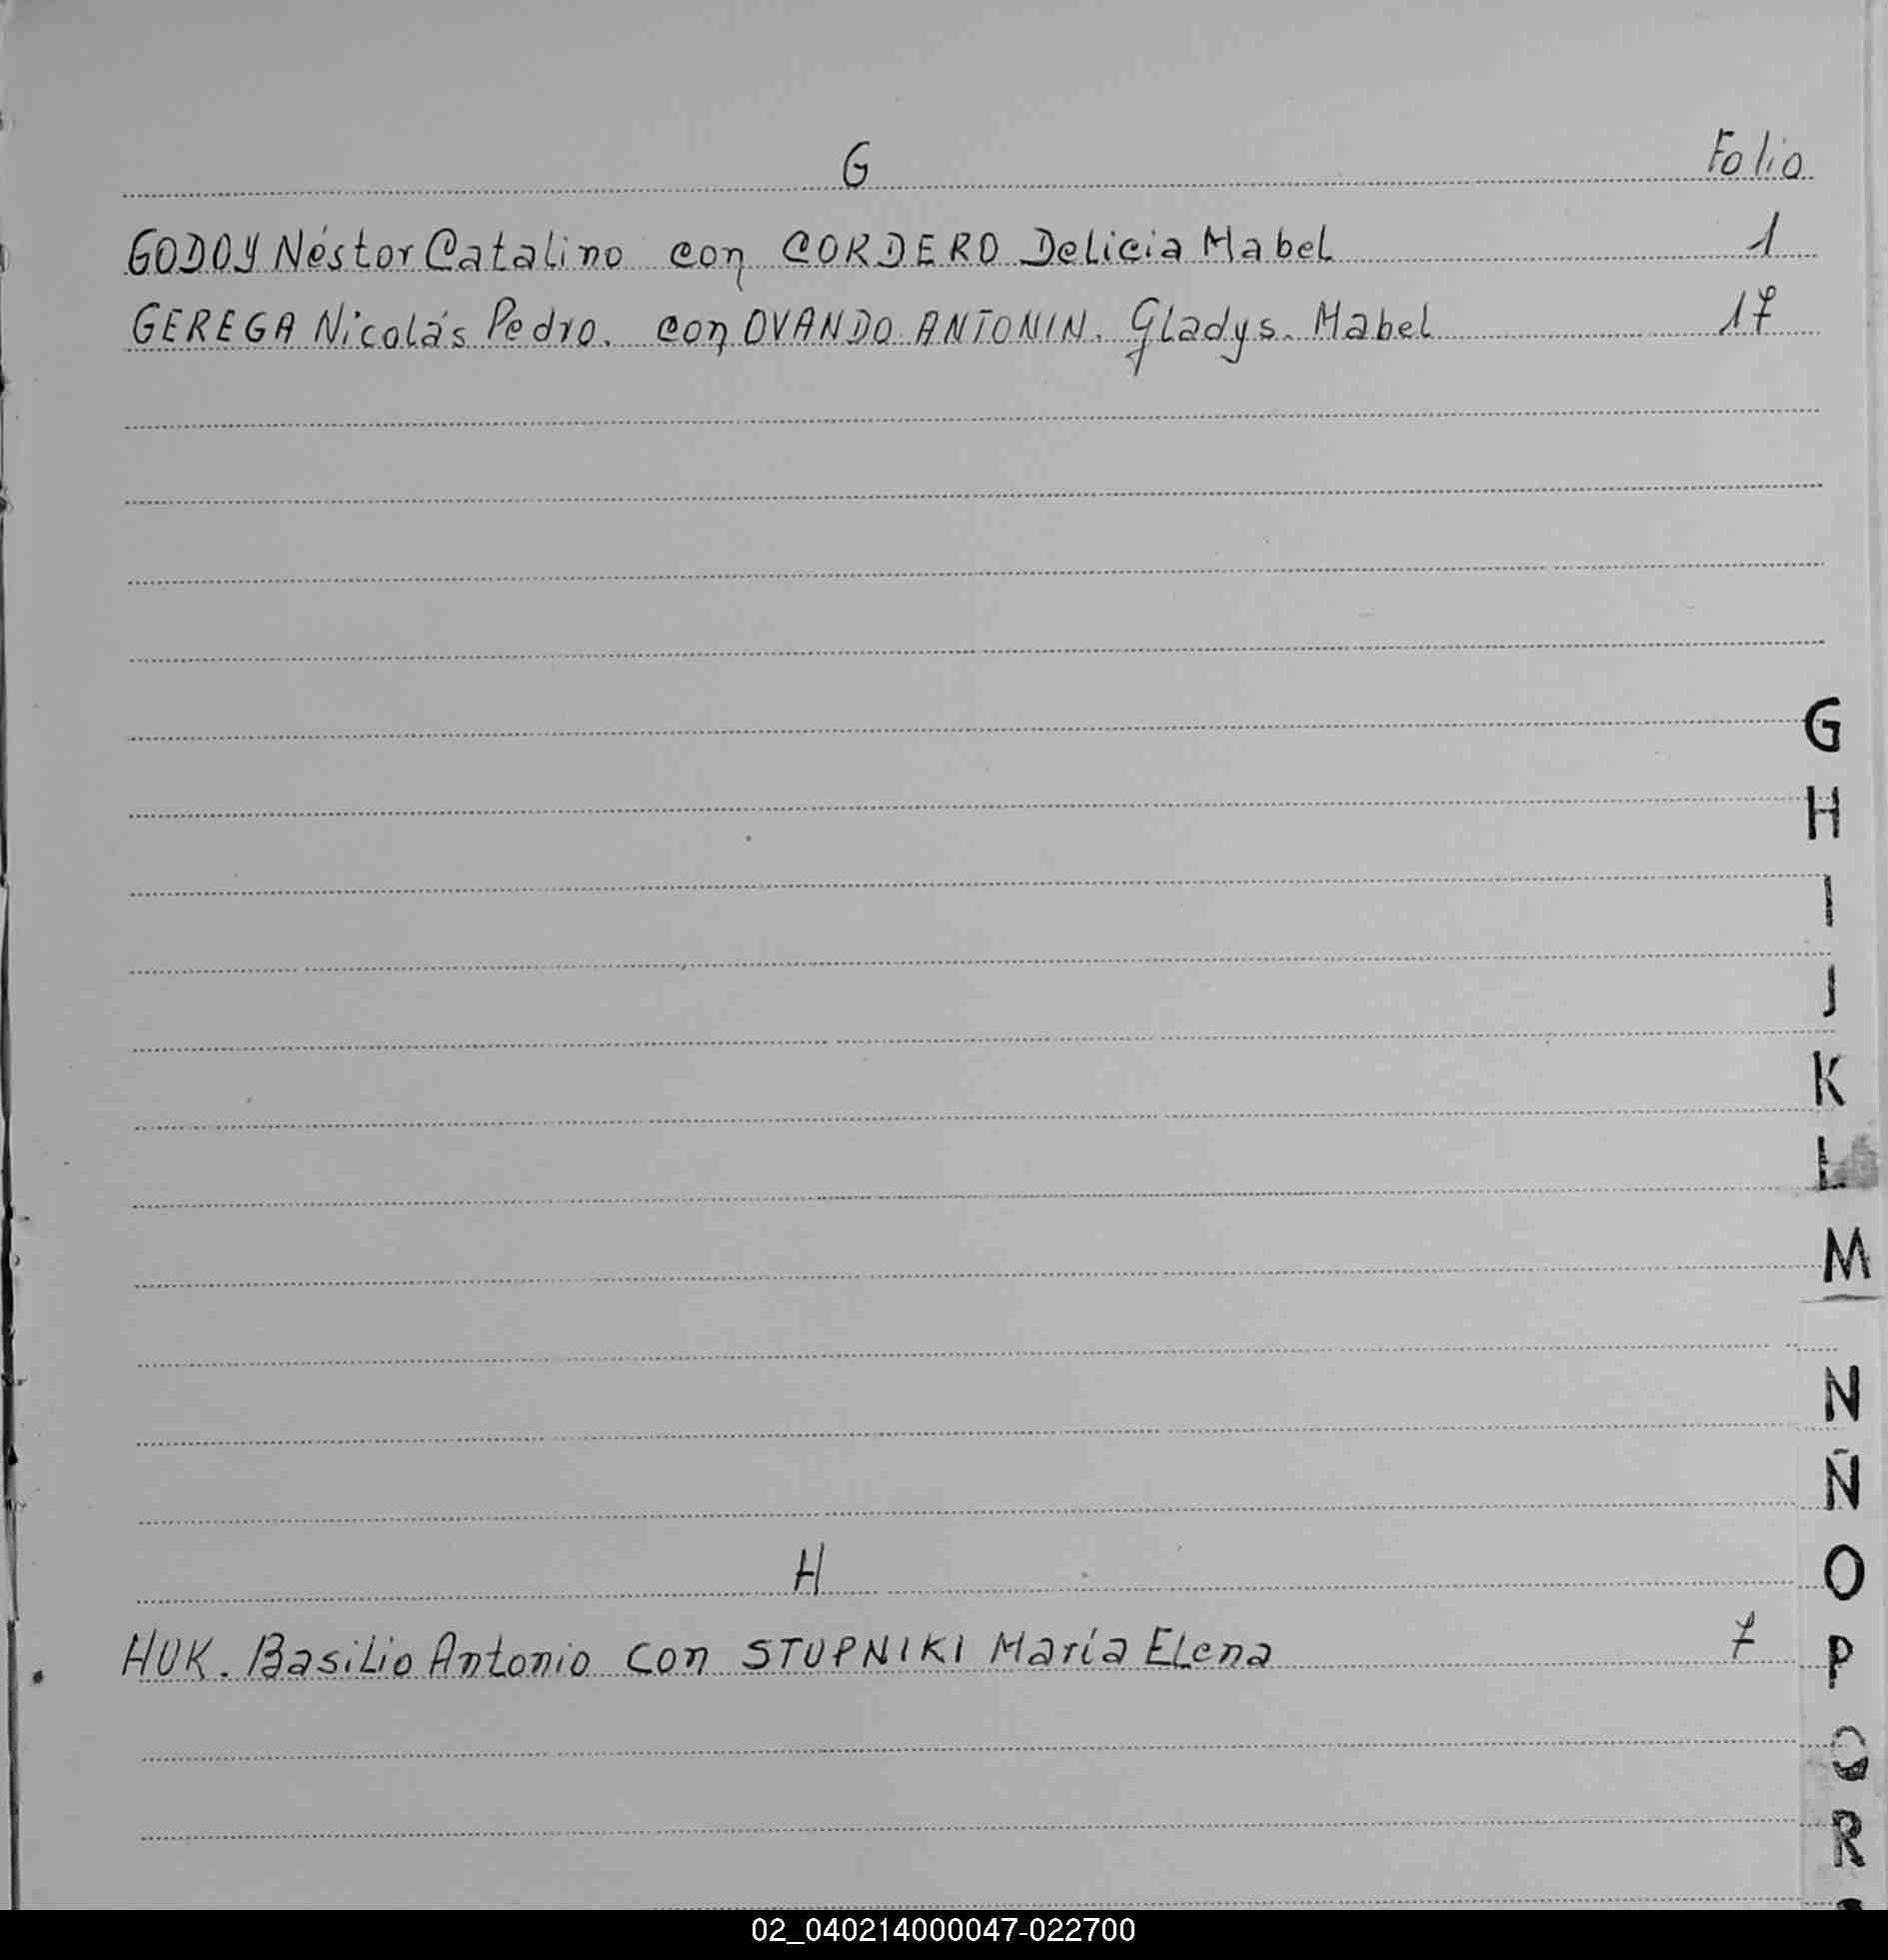 G Folio
GODOY Néstor Catalino con CORDERO Delicia Mabel 1
GEREGA Nicolás Pedro. con OVANDO ANTONIN. Gladys. Mabel 17
G
H
I
J
K
L
M
N
Ñ
O
H
HUK. Basilio Antonio con STUPNIKI María Elena 7
P
Q
R
02_040214000047-022700